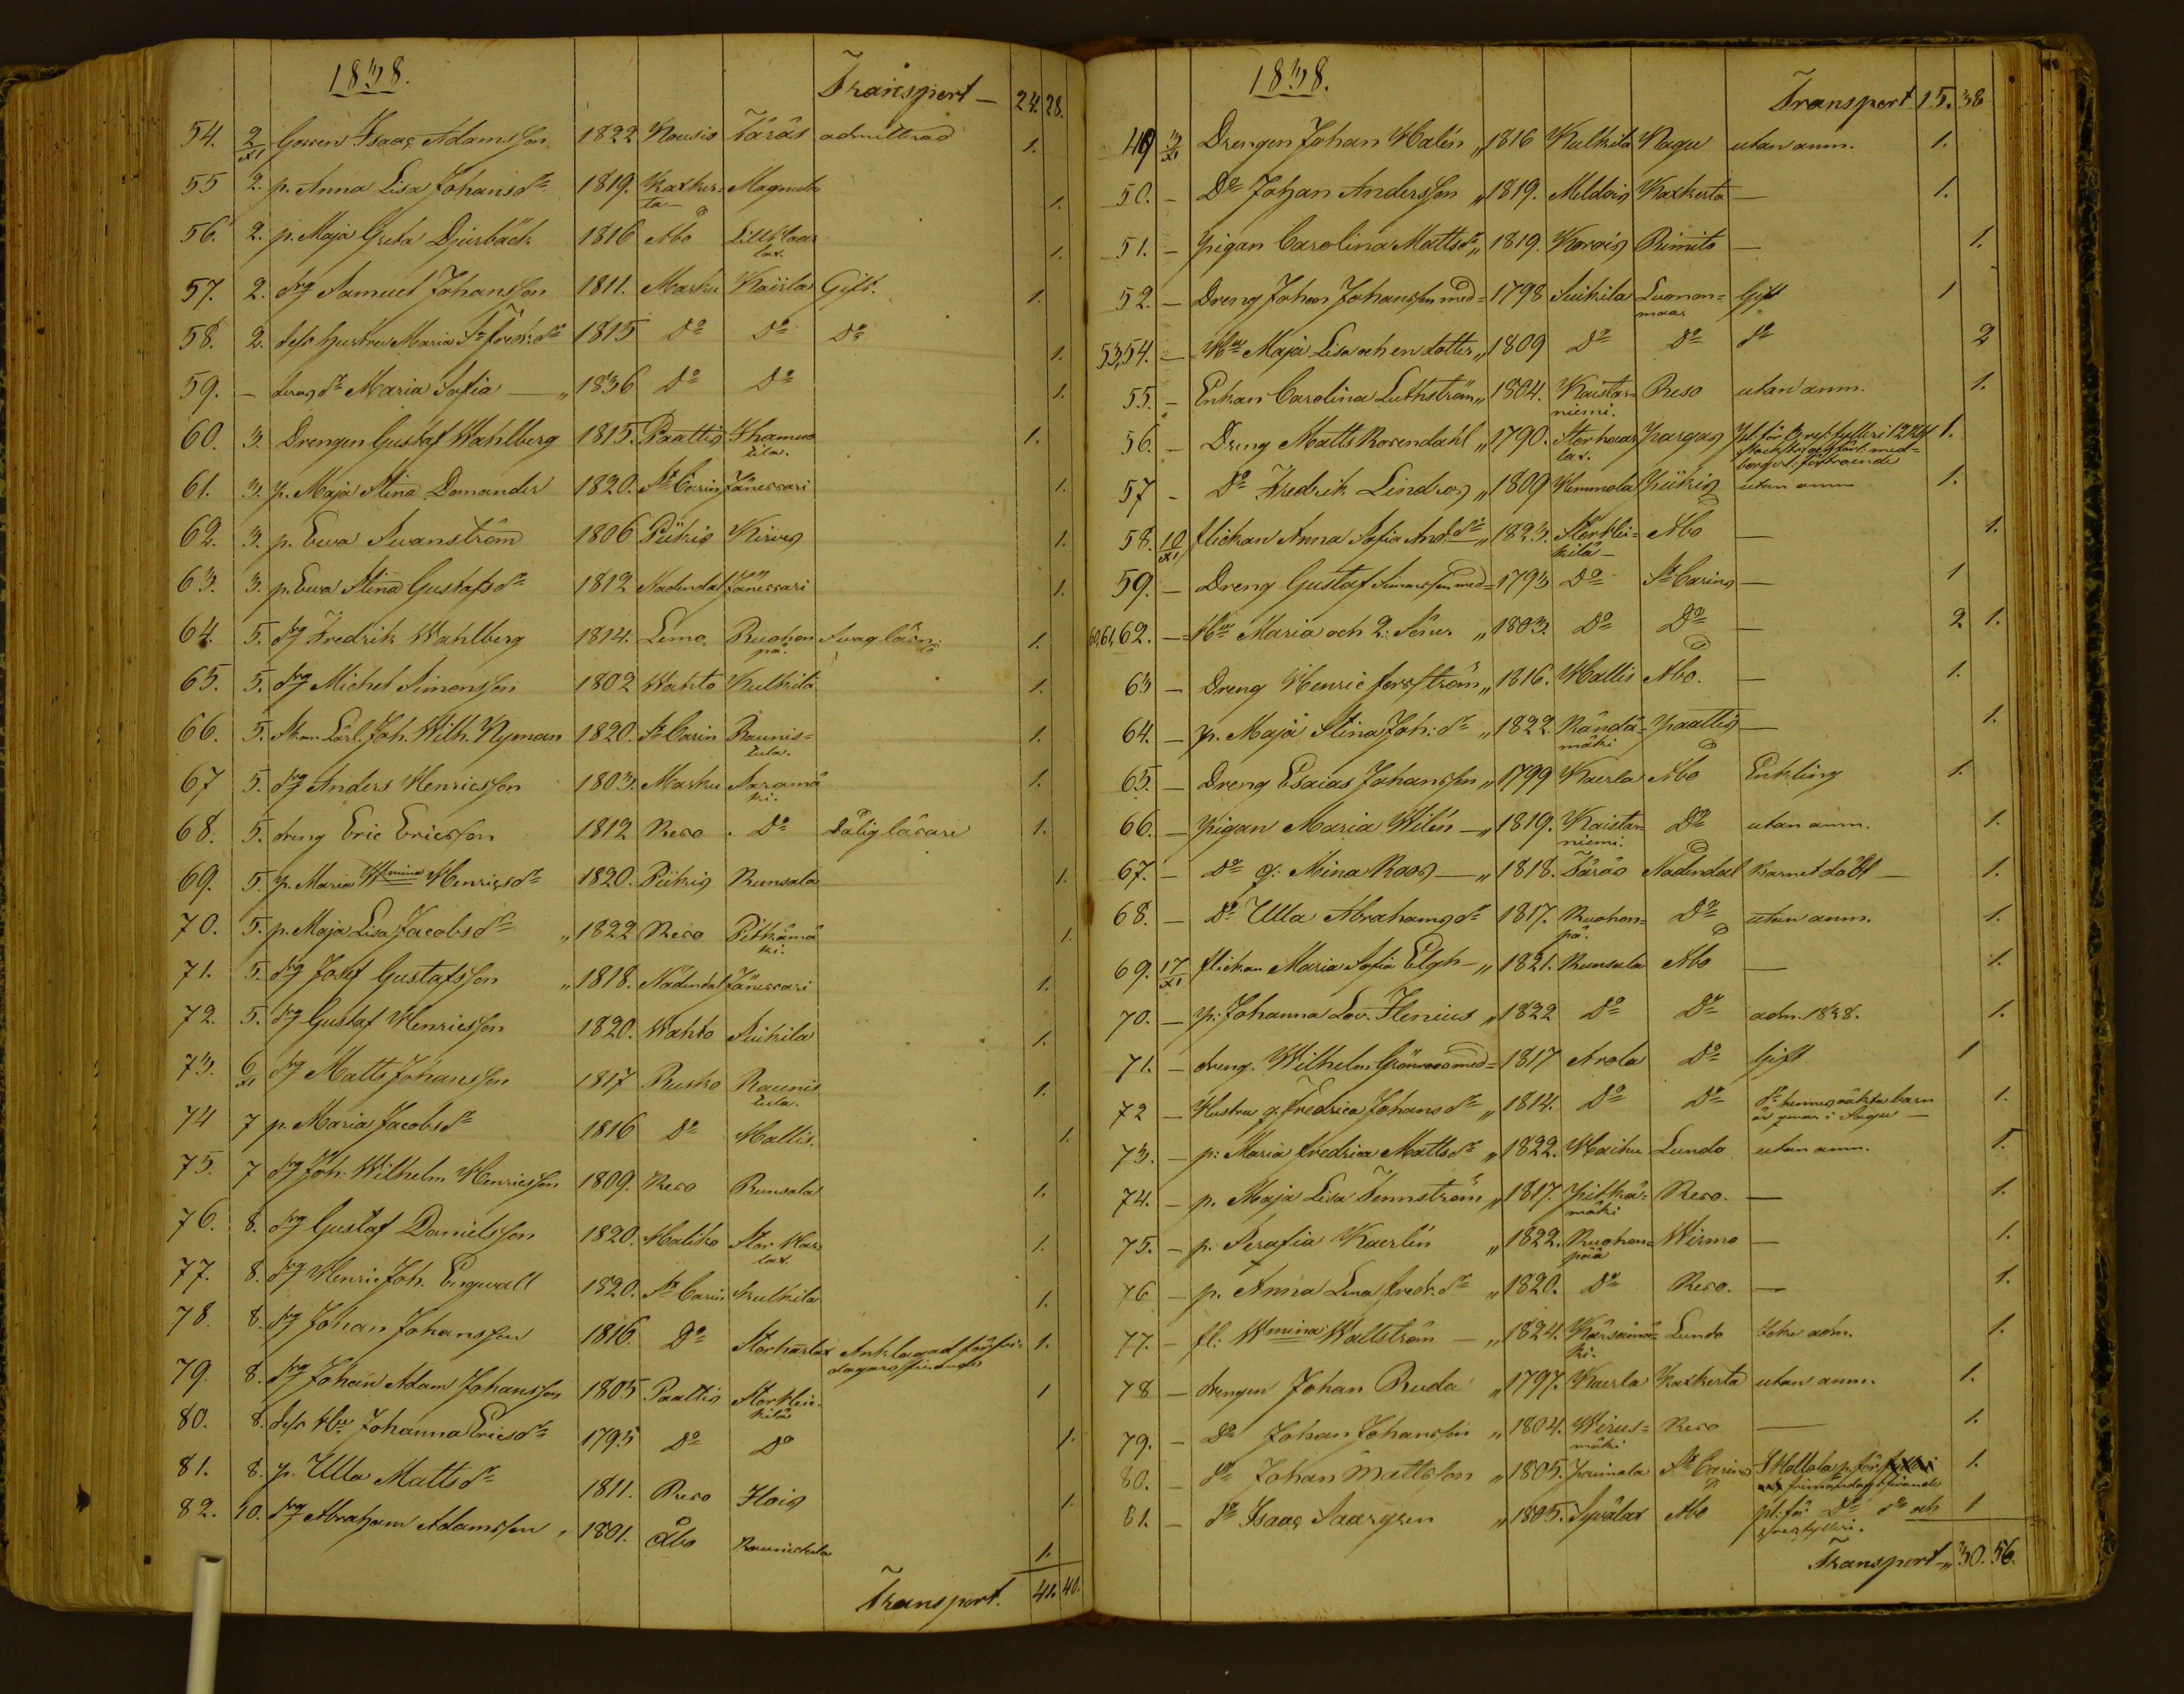 1838.
Transport — 24. 28.
54. 2/XI Gossen Isaac Adamsson 1822 Nousis Täräs admitterad 1.
55 2. p. Anna Lisa Johansdr 1819. Kaxkerta Magnula 1.
56. 2. p. Maja Greta Djurbäck 1816 Åbo Lill Haarlax. 1.
57. 2. drg Samuel Johansson 1811. Masku Kairla Gift. 1.
58. 2. dess hustru Maria Fredr. dr 1815 Do Do Do 1.
59. – deras dr Maria Sofia — „ 1836 Do Do 1.
60. 3. Drengen Gustaf Wahlberg 1815. Paattis 1.
61. 3. p. Maja Stina Domander 1820. St Carin Jänessari 1.
62. 3. p. Ewa Swanström 1806 Pikis Kirves 1.
63. 3. p. Ewa Stina Gustafsdr 1812 Nådendal Jänessari 1.
64. 5. drg Fredrik Wahlberg 1814. Lemo. Ruohonpä. Svag läsn: 1.
65. 5. drg Michel Simonsson 1802 Wahto Kulkila 1.
66. 5. Skom. Lärl. Joh. Wilh. Nyman 1820. St Carin Raunistula. 1.
67 5. drg Anders Henricsson 1803. Masku Saramäki. 1.
68. 5. dreng Eric Ericsson 1812 Reso. Do Dålig läsare 1.
69. 5. p. Maria Wmina Henricsdr 1820. Pikis Runsala 1.
70. 5. p. Maja Lisa Jacobsdr „ 1822 Reso Pitkämäki. 1.
71. 5. drg Josef Gustafsson „ 1818. Nådendal Jänessari 1.
72. 5. drg Gustaf Henricsson 1820. Wahto Suikila 1.
73. 6/XI drg Matts Johansson 1817 Rusko Raunistula. 1.
74 7 p. Maria Jacobsdr 1816 Do Hallis. 1.
75. 7 drg Joh. Wilhelm Henricsson 1809. Reso Runsala 1.
76. 8. drg Gustaf Danielsson 1820. Haliko Stor Harlax. 1.
77. 8. drg Henric Joh. Engwall 1820. St Carin Kulkila 1.
78. 8. drg Johan Johansson 1816. Do Storharlax Anklagad för fridagars firande 1.
79. 8. drg Johan Adam Johansson 1805 Paattis Stor Heikilä 1
80. 8. dess Hu Johanna Ericsdr 1795 Do Do 1.
81. 8. p. Ulla Mattsdr 1811. Reso Ilois 1.
82. 10. drg Abraham Adamsson „ 1801. Åbo Raunistula 1.
Transport. 41. 40.
1838.
Transport 15. 38
49 3/XI Drengen Johan Halén „ 1816 Kulkila Nagu utan anm. 1.
50. – Do Johan Andersson „ 1819. Mildois Kaxkerta — 1.
51. – pigan Carolina Mattsdr „ 1819. Korois Rimito — 1.
52. – Dreng Johan Johansson med = 1798 Suikila Luonnonmaa. Gift 1
53,54. – Hu Maja Lisa och en dotter „ 1809 Do Do Do 2
55. – Enkan Carolina Luthström „ 1804. Kaistarniemi. Reso utan anm. 1.
56. – Dreng Matts Rosendahl „ 1790. Storhaarlax. Pargas 1.
57 – Do Fredrik Lindros „ 1809 Hemmola Pikis utan anm 1.
58. 10/XI flickan Anna Sofia And. dr „ 1823. Stor Heikilä – Åbo — 1.
59. – Dreng Gustaf Simonsson med = 1793 Do St Carins — 1
60,61,62. – Hu Maria och 2: Söner „ 1803. Do Do — 2 1.
63 – Dreng Henric Forsström „ 1816. Hallis Åbo. — 1.
64. – p. Maja Stina Joh: dr „ 1822. Rändämäki Paattis — 1.
65. – Dreng Esaias Johansson „ 1799 Kaerla Åbo Enkling 1.
66. – pigan Maria Wilén — „ 1819. Kaistarniemi. Do utan anm. 1.
67. – Do q: Mina Roos — „ 1818. Täräs Nådendal Barnet dödt — 1.
68. – Do Ulla Abrahamsdr 1817. Ruohonpä. Do utan anm. 1.
69. 17/XI flickan Maria Sofia Elgh — „ 1821. Runsala Åbo — 1.
70. – p: Johanna Lov. Ilenius „ 1822 Do Do adm. 1838. 1.
71. – dreng. Wilhelm Grönroos med = 1817 Arola Do Gift 1
72 – Hustru q. Fredrica Johansdr „ 1814. Do Do Do hennes oäkta barn är qvar i Sagu — 1.
73. – p: Maria Fredrica Mattsdr „ 1822. Haiku Lundo utan anm. 1.
74. – p. Maja Lisa Tennström „ 1817. Pitkämäki Reso. — 1.
75. – p: Serafia Kaerlén „ 1822. Ruohonpää Wirmo — 1.
76 – p. Anna Lena Fredr. dr „ 1820. Do Reso. — 1.
77. – fl: Wmina Wallström — „ 1824. Kärsämäki. Lundo Icke adm. 1.
78 – drengen Johan Ruda „ 1797. Kaerla Kaxkerta utan anm. 1.
79. – Do Johan Johansson „ 1804. Wirusmäki Reso — 1.
80. – do Johan Mattsson „ 1805. Paimala St Carins 1.
81. – do Isaac Saargren „ 1805. Syvälax Åbo pl. för Do do och 1
Transport „ 30. 56.